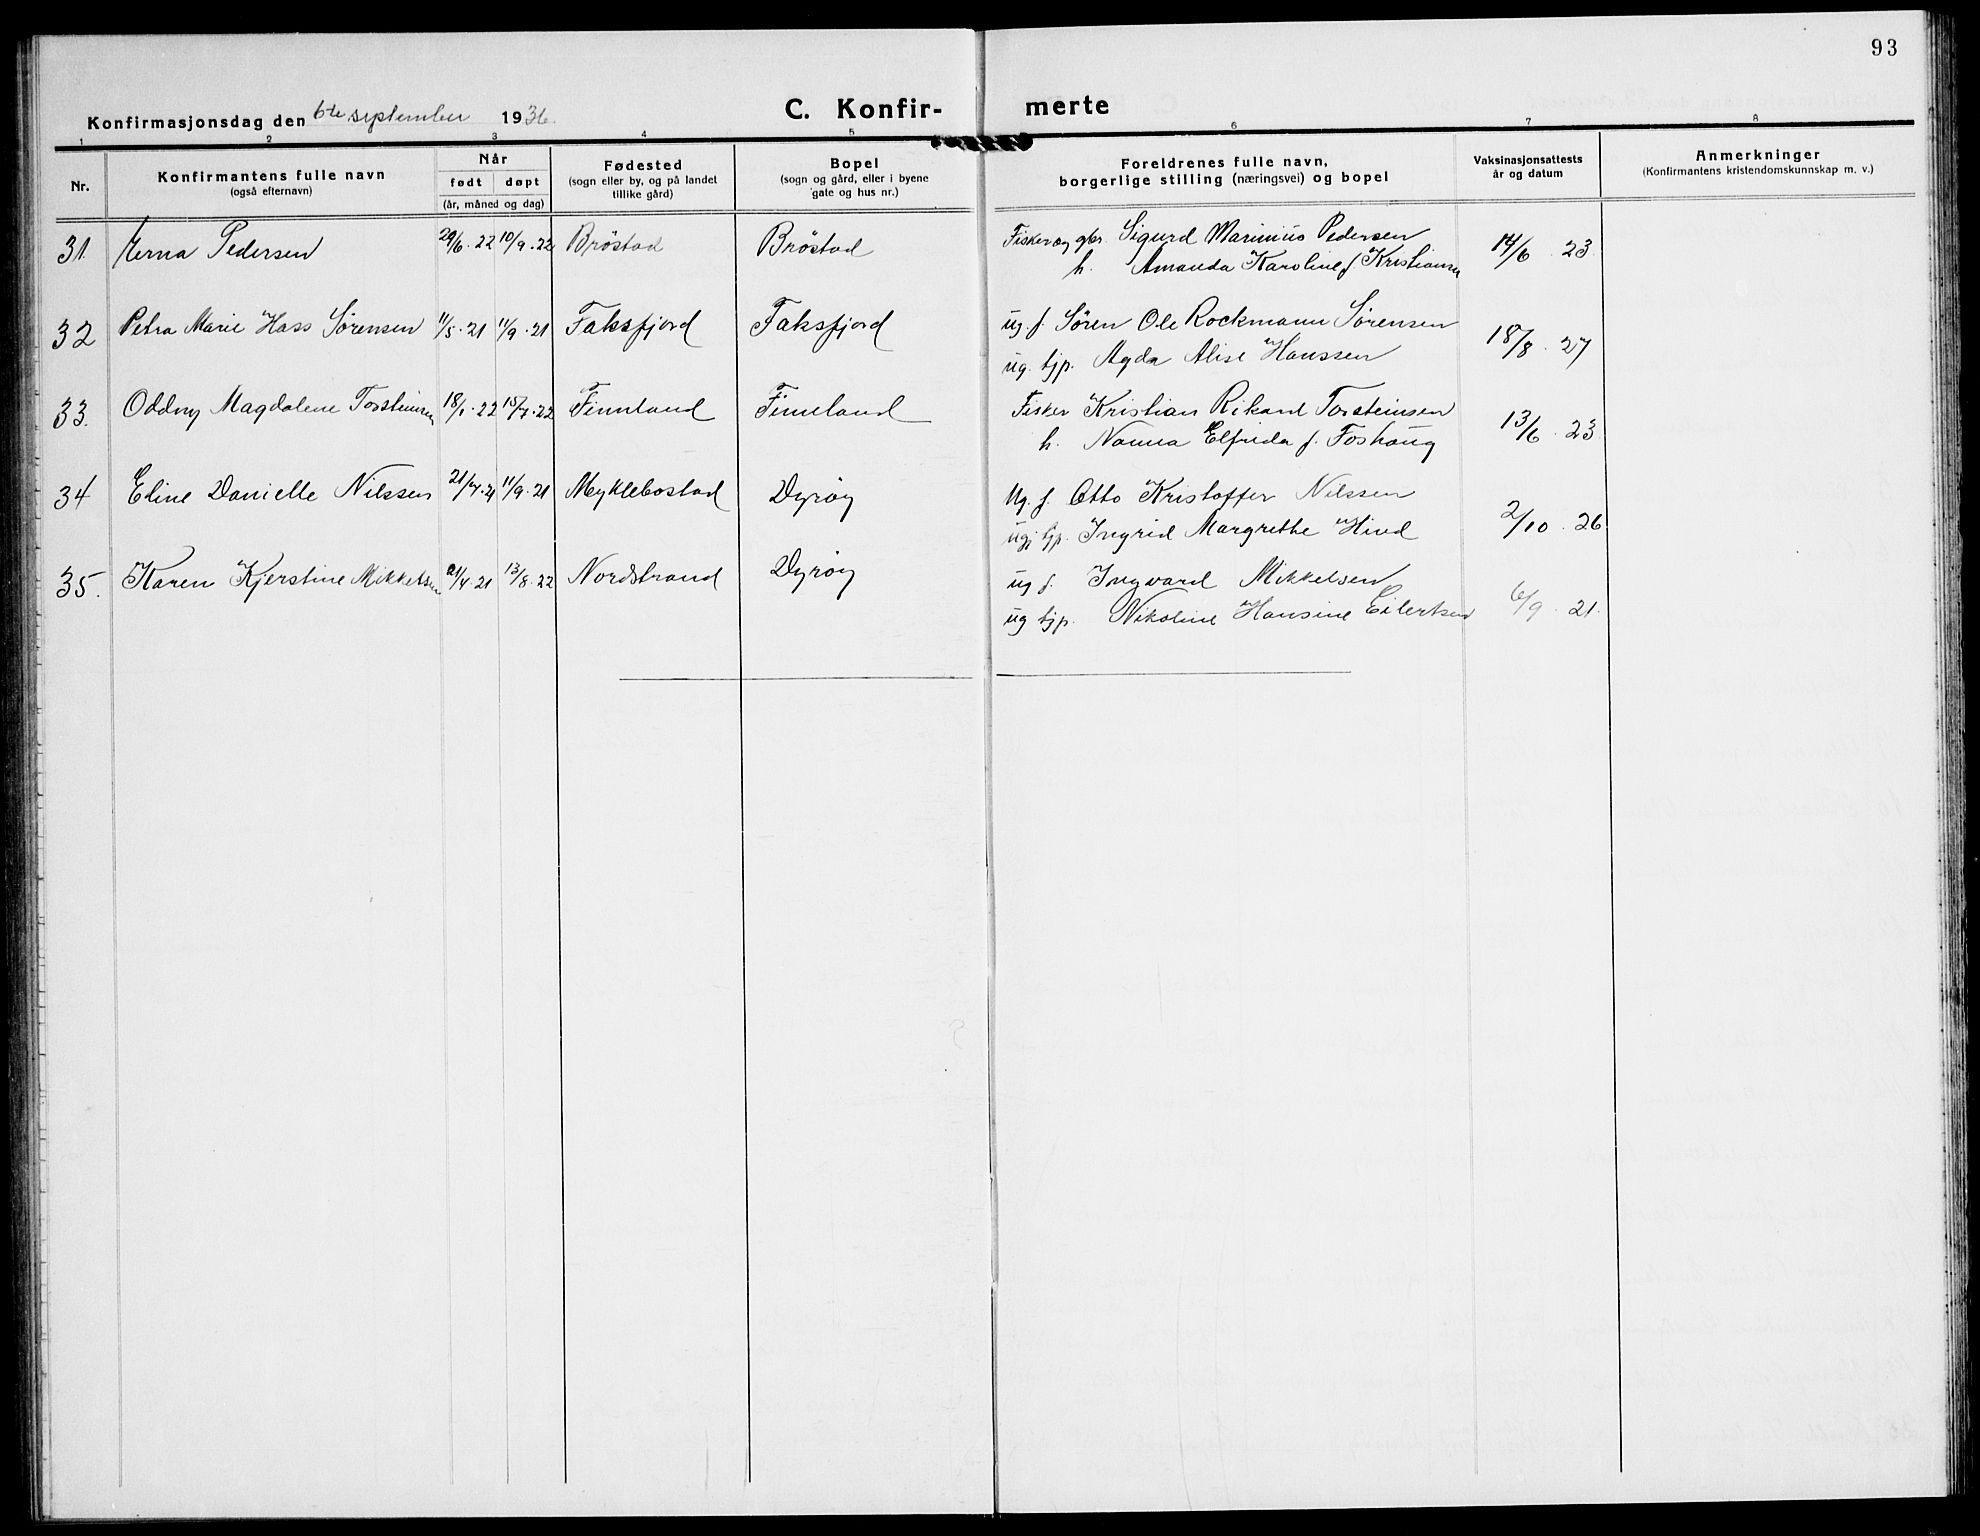 93
Konfirmasjonsdag den 6te september 1936.
C. Konfir-
merte
1 2 3 4 5 6 7 8
Nr.
Konfirmantens fulle navn
(også efternavn)
Når
født døpt
(år, måned og dag)
Fødested
(sogn eller by, og på landet
tillike gård)
Bopel
(sogn og gård, eller i byene
gate og hus nr.)
Foreldrenes fulle navn,
borgerlige stilling (næringsvei) og bopel
Vaksinasjonsattests
år og datum
Anmerkninger
(Konfirmantens kristendomskunnskap m. v.)
31. Erna Pedersen 29/6.22 10/9.22 Bröstad Bröstad Fisker og gbr. Sigurd Marinius Pedersen 14/6 . 23.
h. Amanda Karoline f. Kristiansen
32 Petra Marie Hass Sörensen 11/5.21 11/9.21 Faksfjord Faksfjord ug. f. Sören Ole Rockmann Sörensen 18/8 . 27
ug. tjp. Agda Alise Hanssen
33. Oddny Magdalene Torsteinsen 18/1.22 15/7.22 Finnland Finnland Fisker Kristian Rikard Torsteinsen 13/6 . 23
h. Nanna Elfrida f. Foshaug
34 Eline Danielle Nilssen 21/7.21 11/9.21 Myklebostad Dyröy Ug. f. Otto Kristoffer Nilssen 2/10 . 26.
ug. tjp. Ingrid Margrethe Hind
35. Karen Kjerstine Mikkelsen 21/4.21 13/8.22 Nordstrand Dyröy ug f. Ingvard Mikkelsen 6/9 . 21.
ug tjp. Nikoline Hansine Eilertsen